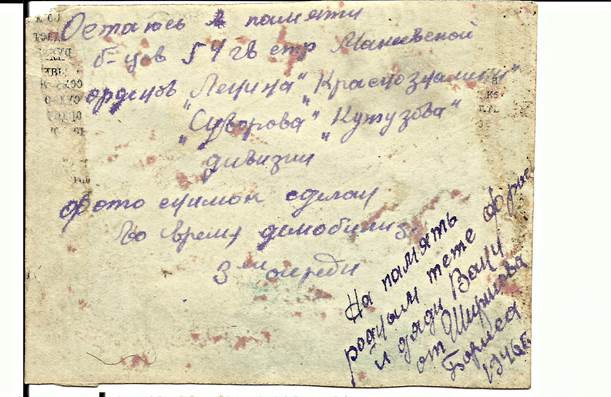 Остаюсь в памяти
б-цов 54 гв стр Макеевской
орденов "Ленина" "Краснознамен"
"Суворова" "Кутузова"
дивизии
фото снимок сделан
во время демобилиз.
3ей очереди
На память
родным тете
и дяди Вани
от Ширшова
Бориса
1946г